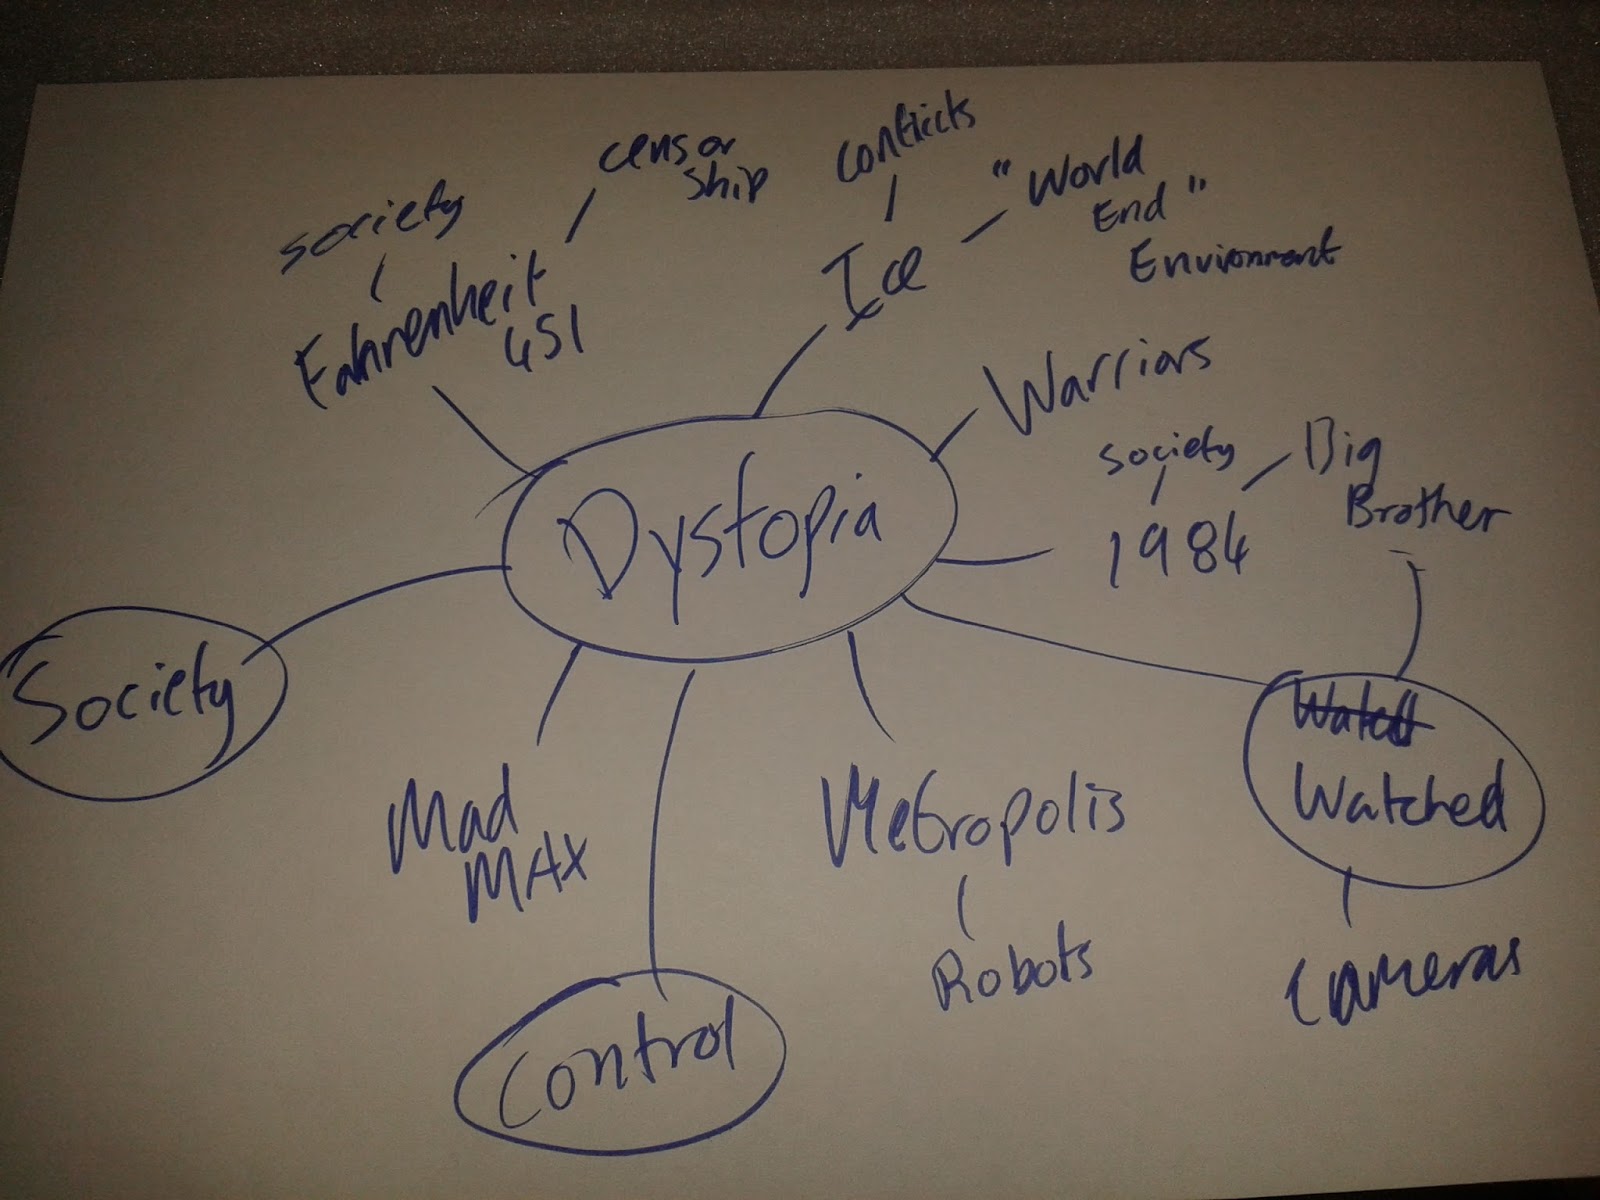 society
censor
ship
Fahrenheit
451
conflicts
"World
End"
Environment
Ice
Warriors
society
1984
Big
Brother
Dystopia
Society
Watched
Cameras
Mad
MAX
Metropolis
Robots
Control